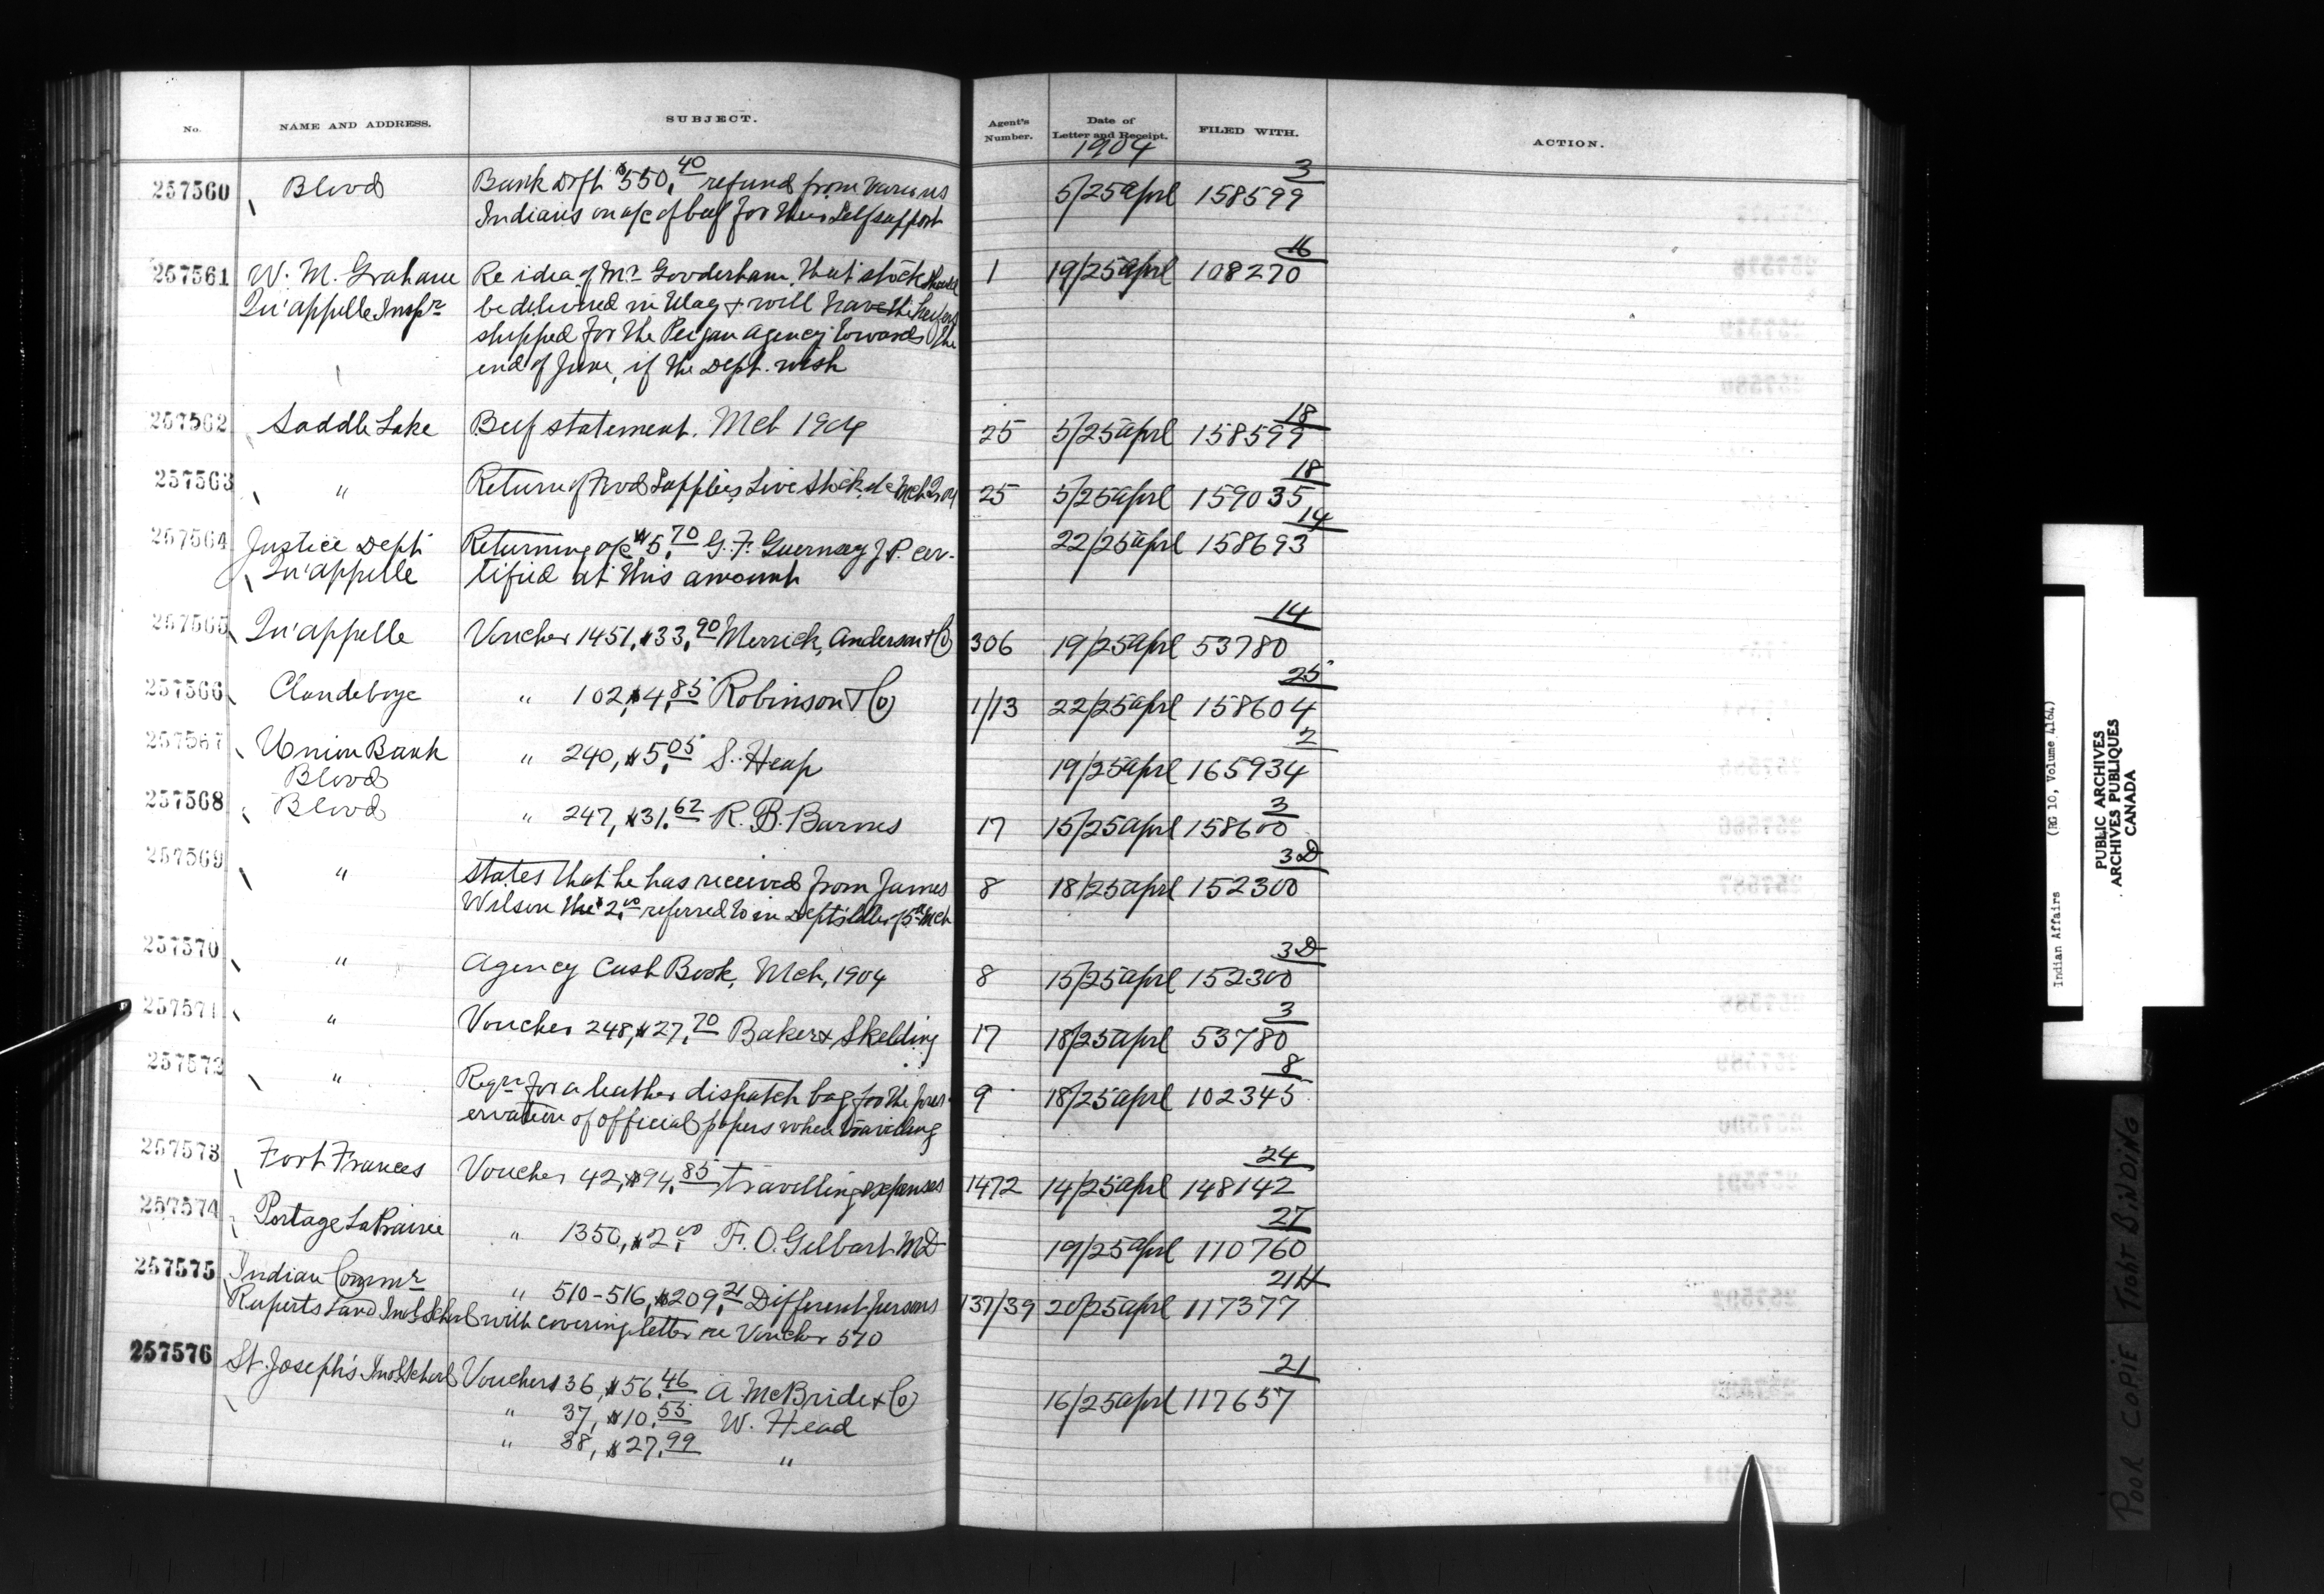 No. NAME AND ADDRESS. SUBJECT. Agent's Number. Date of Letter and Receipt. FILED WITH. ACTION.
1904
257560 Blood Bank Dft $550.40 refund from various 5/25 Aprl 158599 3
Indians on a/c of beef for their Self support
257561 W. M. Graham Re idea of Mr Gooderham that stock should 1 19/25 Aprl 108270 16
Qu'appelle Inspr be delivered in May & will have the heifers
shipped for the Peigan Agency towards the
end of June, if the Dept. wish
257562 Saddle Lake Beef statement. Mch 1904 25 5/25 Aprl 158599 18
257563 " Return of Food Supplies, Live Stock, &c Mch 1904 25 5/25 Aprl 159035 18
257564 Justice Dept Returning a/c $5.70 G. F. Guernsey J.P. cer- 22/25 Aprl 158693 14
Qu'appelle tified at this amount
257565 Qu'appelle Voucher 1451, $33.90 Merrick, Anderson & Co 306 19/25 Aprl 53780 14
257566 Clandeboye " 102, $4.85 Robinson & Co 1/13 22/25 Aprl 158604 25
257567 Union Bank " 240, $5.05 S. Heap 19/25 Aprl 165934 2
Blood
257568 Blood " 247, $31.62 R. B. Barnes 17 15/25 Aprl 158600 3
257569 " States that he has received from James 8 18/25 Aprl 152300 3D
Wilson the $2.00 referred to in Dept's letter of 5th Mch
257570 " Agency Cash Book, Mch, 1904 8 15/25 Aprl 152300 3D
257571 " Voucher 248, $27.70 Baker & Skelding 17 18/25 Aprl 53780 3
257572 " Reqn for a leather dispatch bag for the pres- 9 18/25 Aprl 102345 8
ervation of official papers when travelling
257573 Fort Frances Voucher 42, $94.85 travelling expenses 1472 14/25 Aprl 148142 24
257574 Portage La Prairie " 1350, $2.00 F. O. Gilbart MD 19/25 Aprl 110760 27
257575 Indian Commr " 510-516, $209.21 Different persons 137/39 20/25 Aprl 117377 21H
Ruperts Land Ind. School with covering letter re Voucher 510
257576 St. Joseph's Ind. School Vouchers 36, $56.46 A McBride & Co 16/25 Aprl 117657 21
" 37, $10.55 W. Head
" 38, $27.99 "
Indian Affairs (RG 10, Volume 4164)
PUBLIC ARCHIVES
ARCHIVES PUBLIQUES
CANADA
POOR COPIE TIGHT BINDING